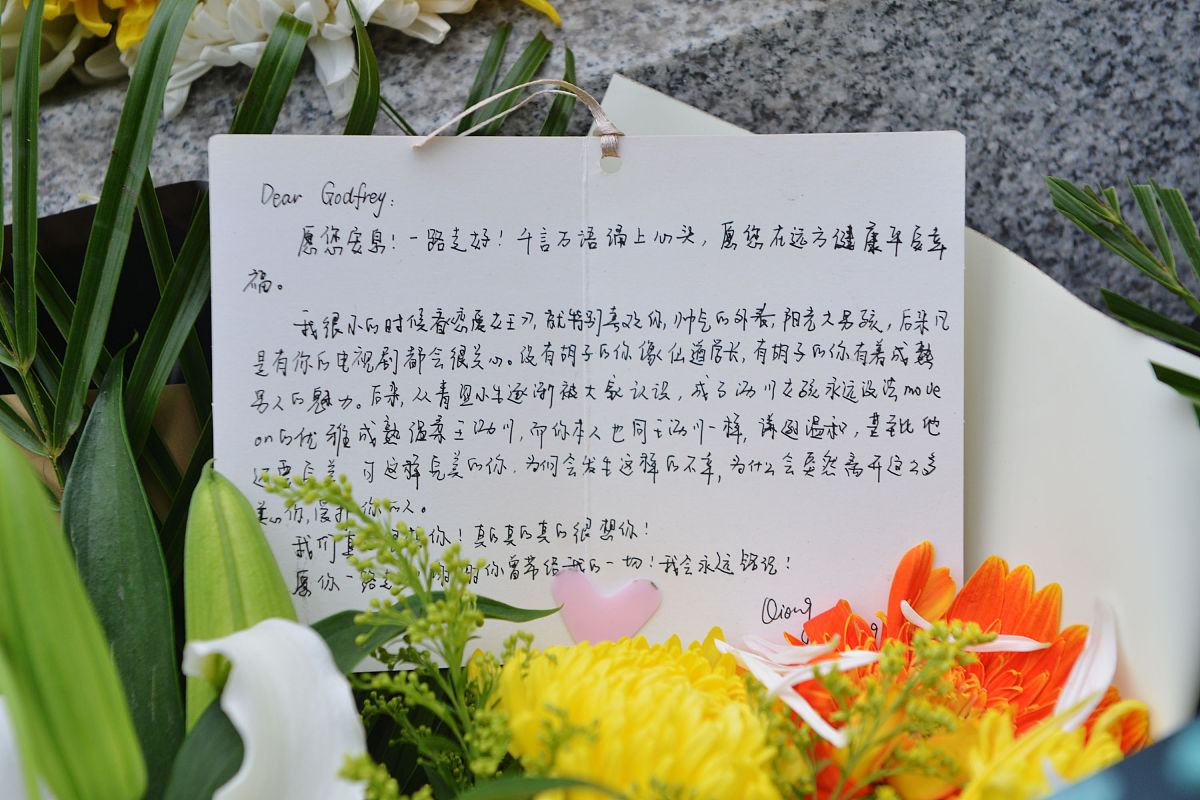 Dear Godfrey:
愿您安息！一路走好！千言万语涌上心头，愿您在远方健康平安幸
福。
我很小的时候看《恶魔在身边》，就特别喜欢你，帅气的外表，阳光大男孩，后来凡
是有你的电视剧都会很关心。没有胡子的你像仙道学长，有胡子的你有着成熟
男人的魅力。后来，从青涩小生逐渐被大家认识，成了沥川女孩永远没法move
on的优雅成熟温柔王沥川，而你本人也同王沥川一样，谦逊温和，甚至比他
还要完美。可这样完美的你，为何会发生这样的不幸，为什么会突然离开这么多
你，爱你的人。
我们真 你！真的真的真的很想你！
愿你一路走 你曾带给我的一切！我会永远铭记！
Qiong